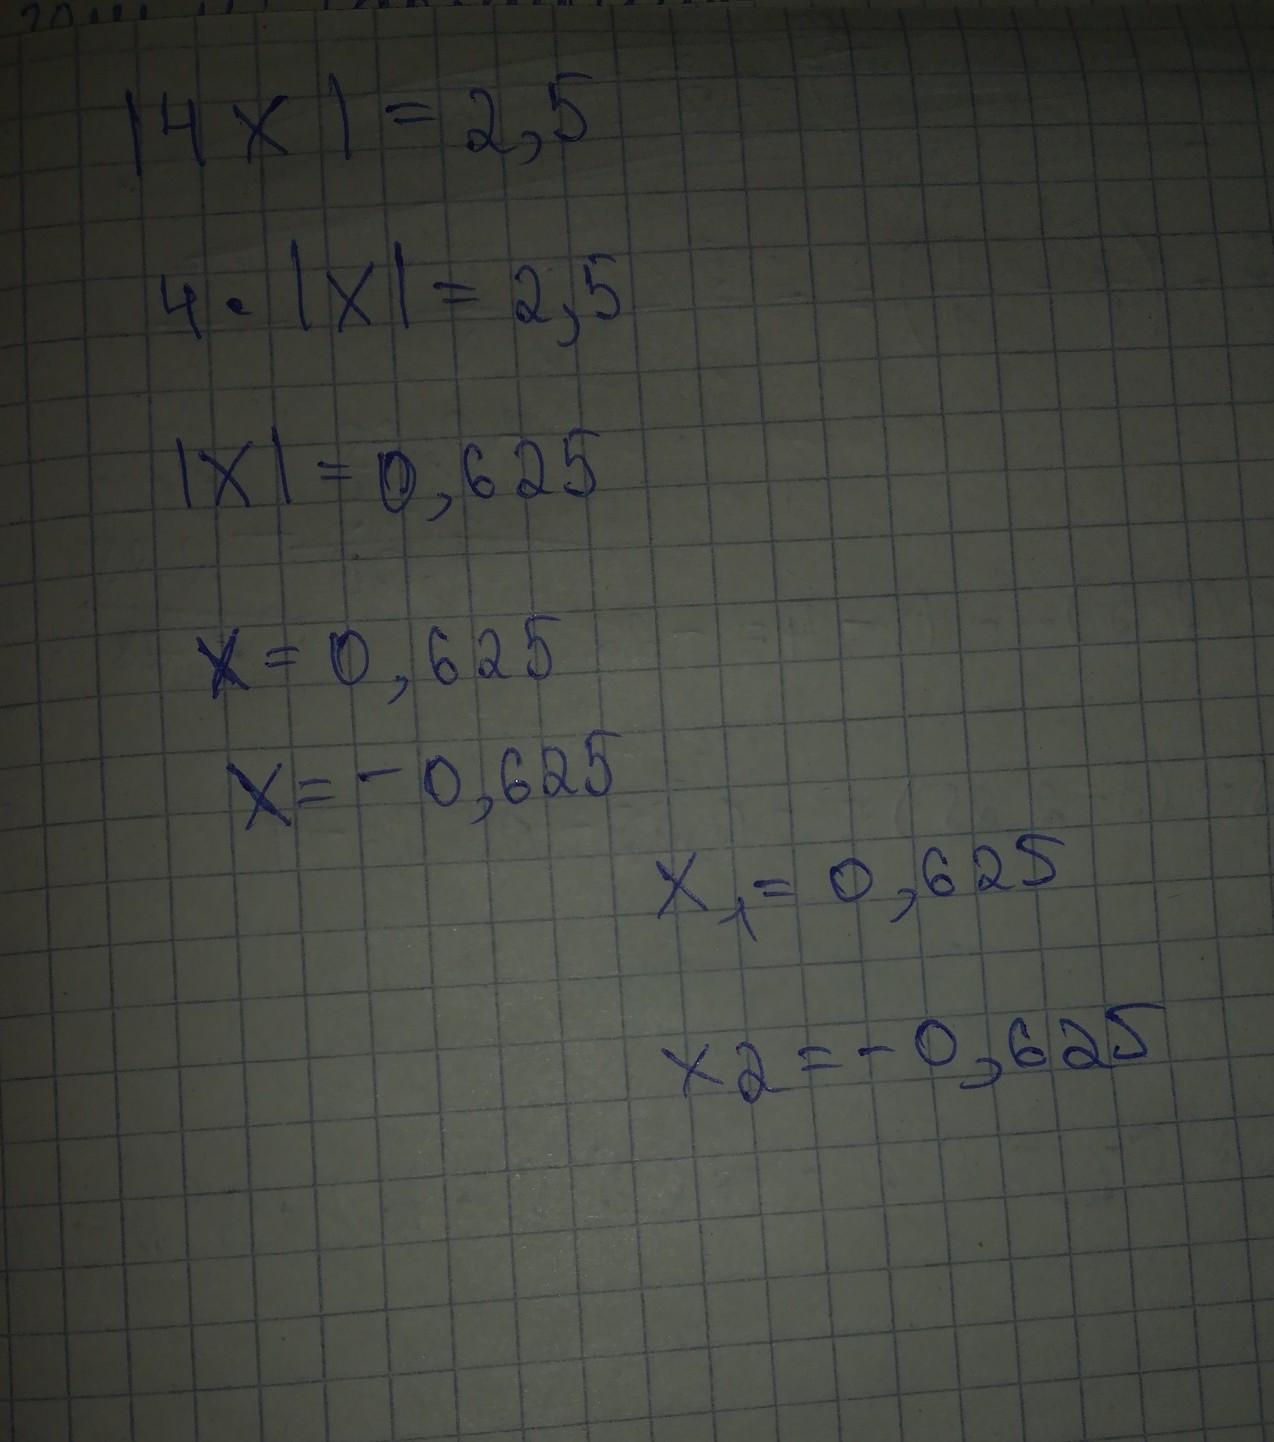 |4x| = 2,5
4 · |x| = 2,5
|x| = 0,625
x = 0,625
x = - 0,625
x₁ = 0,625
x2 = - 0,625